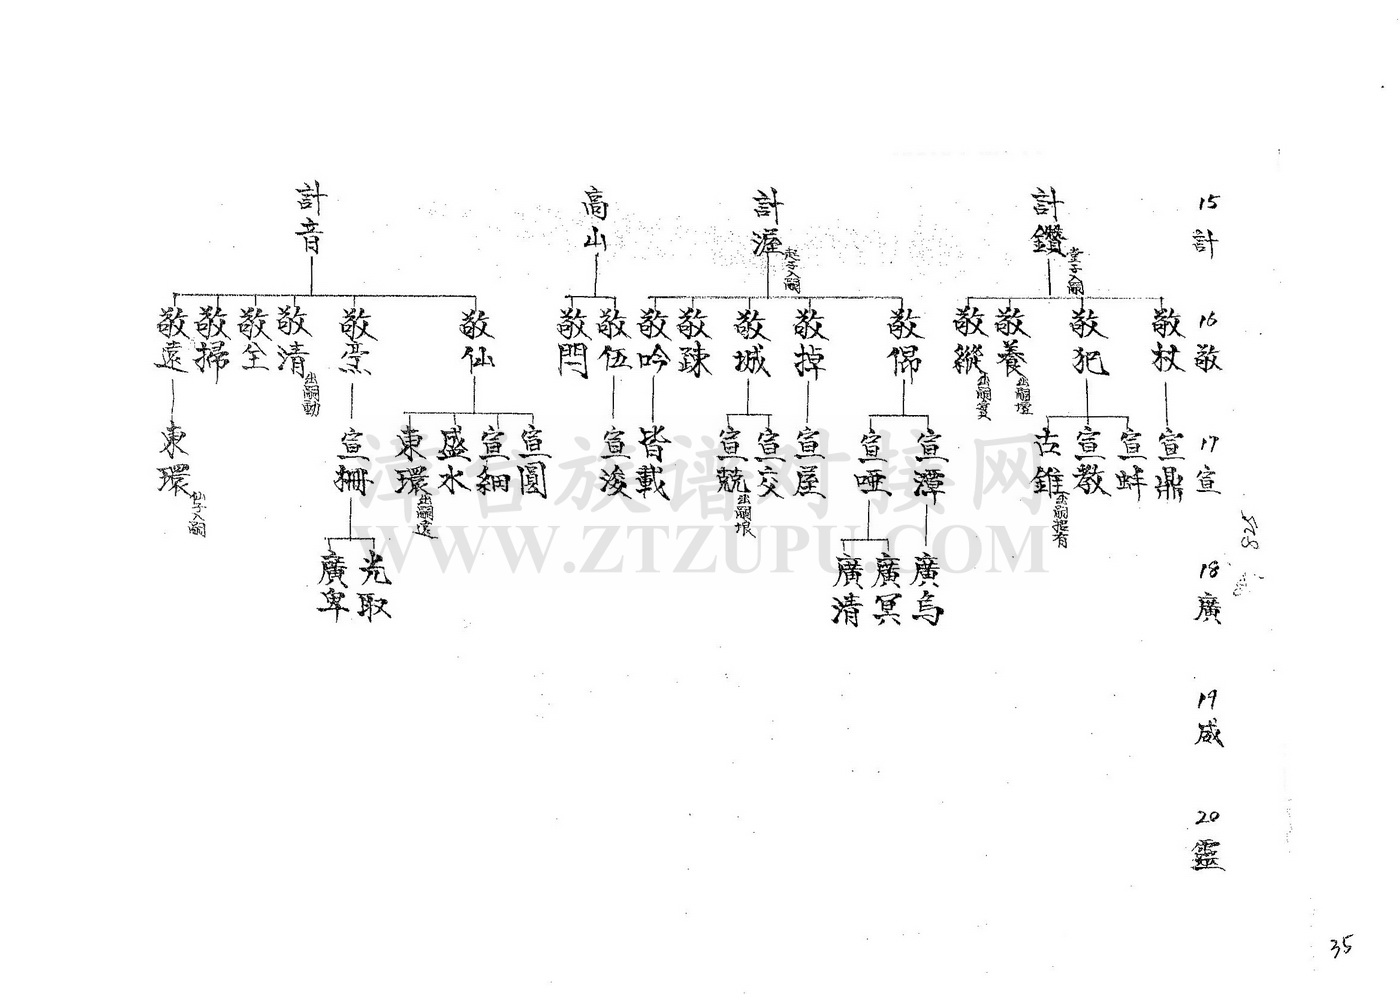 15 計
計鑽
堂子入嗣
計渥
起子入嗣
高山
計音
16 敬
敬杖
敬犯
敬養
出嗣壇
敬縱
出嗣
敬㑆
敬掉
敬城
敬疎
敬吟
敬伍
敬閂
敬仙
敬清
出嗣勳
敬全
敬掃
敬遠
17 宣
宣鼎
宣蚌
宣教
古錐
宣潭
宣啞
宣屋
宣交
宣兢
皆載
宣浚
宣圓
宣細
盛水
東環
出嗣遠
宣柵
東環
仙子入嗣
18 廣
廣烏
廣冥
廣清
光取
廣卑
19 咸
20 靈
525
35
漳台族谱对接网
WWW.ZTZUPU.COM